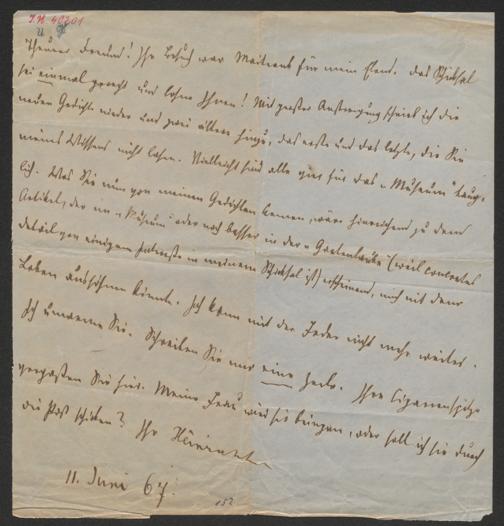 I.N. 40301
Theurer Freund! Ihr Besuch war Maitrank für mein Elend. Das Schicksal
sei einmal gerecht und lohne Ihnen! Mit großer Anstrengung schrieb ich die
neuen Gedichte nieder und zwei ältere hinzu, das erste und das letzte, die Sie
meines Wissens nicht lasen. Vielleicht sind alle gut für das "Museum" taug-
lich. Was Sie nun von meinen Gedichten kennen, wäre hinreichend zu dem
Artikel, der im "Museum" oder noch besser in der "Gartenlaube" (weil concretes
Detail von einigem Interesse in meinem Schicksal ist) erscheinend, mich mit dem
Leben aussöhnen könnte. Ich kann mit der Feder nicht mehr weiter.
Ich umarme Sie. Schreiben Sie nur eine Zeile. Ihre Cigarrenspitze
vergaßen Sie hier. Meine Frau wird sie bringen, oder soll ich sie durch
die Post schicken? Ihr
11. Juni 67.
152